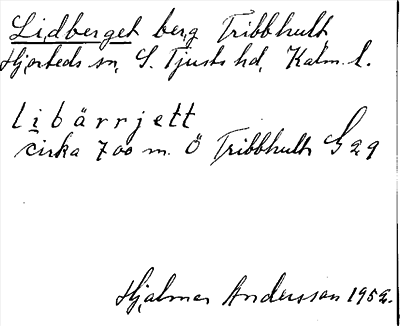 Lidberget berg Tribbhult,
Hjorteds sn, S. Tjusts hd, Kalm. l.
libärrjett
cirka 700 m. Ö Tribbhult G 29
Hjalmar Andersson 1952.